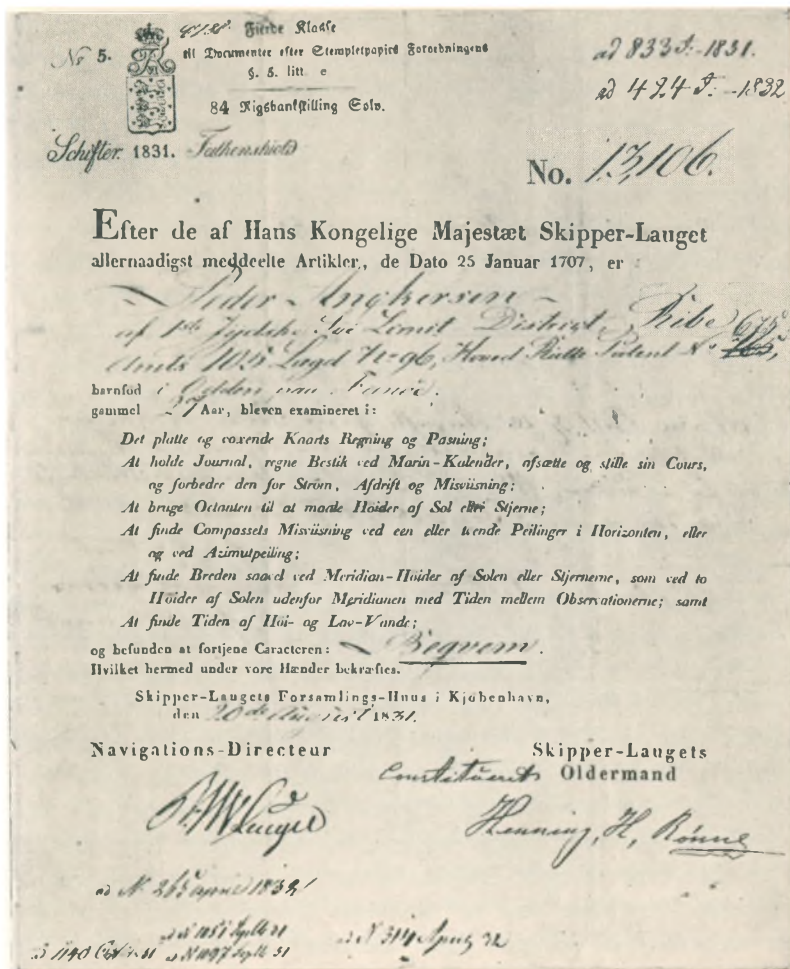 No 5. Fierde Klasse
til Documenter efter Stempletpapirs Forordningens
§. 5. litt e
84 Rigsbankskilling Sølv.
ad 833 J. - 1831.
ad 424 J. - 1832
Schifter. 1831. Falkenskiold
No. 13,106.
Efter de af Hans Kongelige Majestæt Skipper-Lauget
allernaadigst meddeelte Artikler, de Dato 25 Januar 1707, er
Peder Angkersen
af 1ste Jydske Søe Limit District, Ribe 675
Amts 105 Lægd No 96, Hoved Rulle Patent No 165,
barnfød i Odden paa Fanøe.
gammel 27 Aar, bleven examineret i:
Det platte og voxende Kaarts Regning og Pasning;
At holde Journal, regne Bestik ved Marin-Kalender, afsætte og stille sin Cours,
og forbedre den for Strøm, Afdrift og Misviisning;
At bruge Octanten til at maale Høider af Sol eller Stjerne;
At finde Compassets Misviisning ved een eller tvende Peilinger i Horizonten, eller
og ved Azimutpeiling;
At finde Breden saavel ved Meridian-Høider af Solen eller Stjernerne, som ved to
Høider af Solen udenfor Meridianen med Tiden mellem Observationerne; samt
At finde Tiden af Høi- og Lav-Vande;
og befunden at fortjene Caracteren: Beqvem.
Hvilket hermed under vore Hænder bekræftes.
Skipper-Laugets Forsamlings-Huus i Kjøbenhavn,
den 20de August 1831.
Navigations-Directeur
Skipper-Laugets
Constitueret Oldermand
Henning, H, Rønne
ad No 265 1832
ad No 314 April 32
ad No 1151 31
ad No 1197 31
1140 31